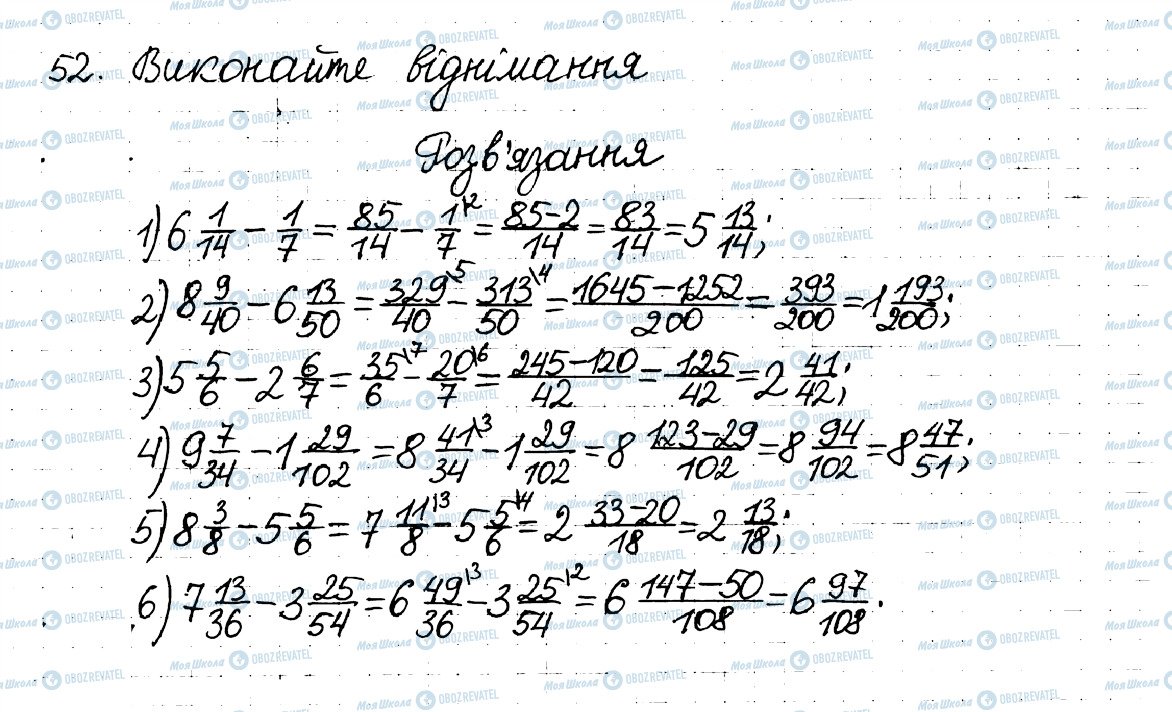 52. Виконайте віднімання
Розв'язання
1) 6 1/14 - 1/7 = 85/14 - 1/7 \2 = (85-2)/14 = 83/14 = 5 13/14;
2) 8 9/40 - 6 13/50 = 329/40 \5 - 313/50 \4 = (1645-1252)/200 = 393/200 = 1 193/200;
3) 5 5/6 - 2 6/7 = 35/6 \7 - 20/7 \6 = (245-120)/42 = 125/42 = 2 41/42;
4) 9 7/34 - 1 29/102 = 8 41/34 \3 - 1 29/102 = 8 (123-29)/102 = 8 94/102 = 8 47/51;
5) 8 3/8 - 5 5/6 = 7 11/8 \3 - 5 5/6 \4 = 2 (33-20)/18 = 2 13/18;
6) 7 13/36 - 3 25/54 = 6 49/36 \3 - 3 25/54 \2 = 6 (147-50)/108 = 6 97/108.